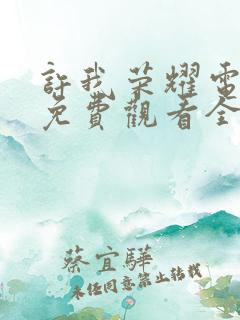 許我荣耀電
免費觀看全
蔡宜驊
未经同意禁止转载